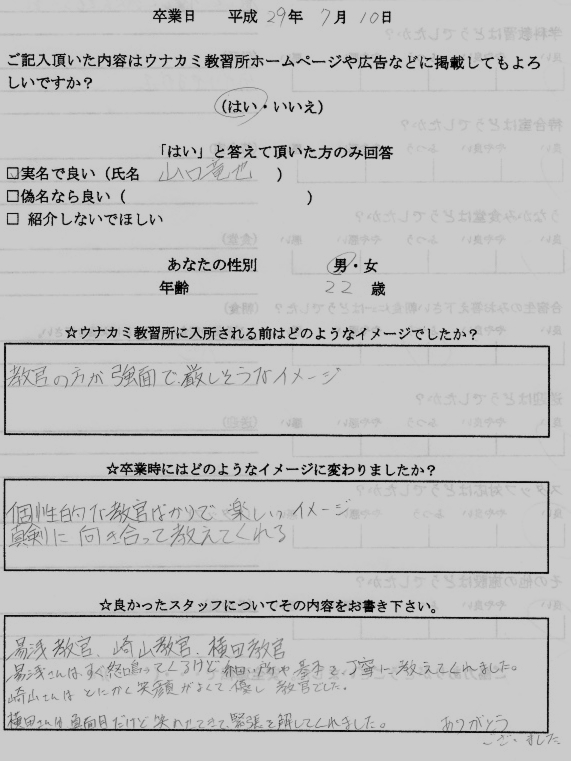 卒業日 平成 29年 7月 10日
ご記入頂いた内容はウナカミ教習所ホームページや広告などに掲載してもよろ
しいですか？
（はい・いいえ）
「はい」と答えて頂いた方のみ回答
□実名で良い（氏名 山口竜也 ）
□偽名なら良い（ ）
□ 紹介しないでほしい
あなたの性別 男・女
年齢 22 歳
☆ウナカミ教習所に入所される前はどのようなイメージでしたか？
教官の方が強面で厳しそうなイメージ
☆卒業時にはどのようなイメージに変わりましたか？
個性的な教官ばかりで楽しいイメージ
真剣に向き合って教えてくれる
☆良かったスタッフについてその内容をお書き下さい。
湯浅教官、崎山教官、横田教官
湯浅さんはすぐ怒鳴ってくるけど細い所や基本を丁寧に教えてくれました。
崎山さんはとにかく笑顔がよくて優しい教官でした。
横田さんは真面目だけど笑わせてきて緊張を解してくれました。 ありがとう
ございました